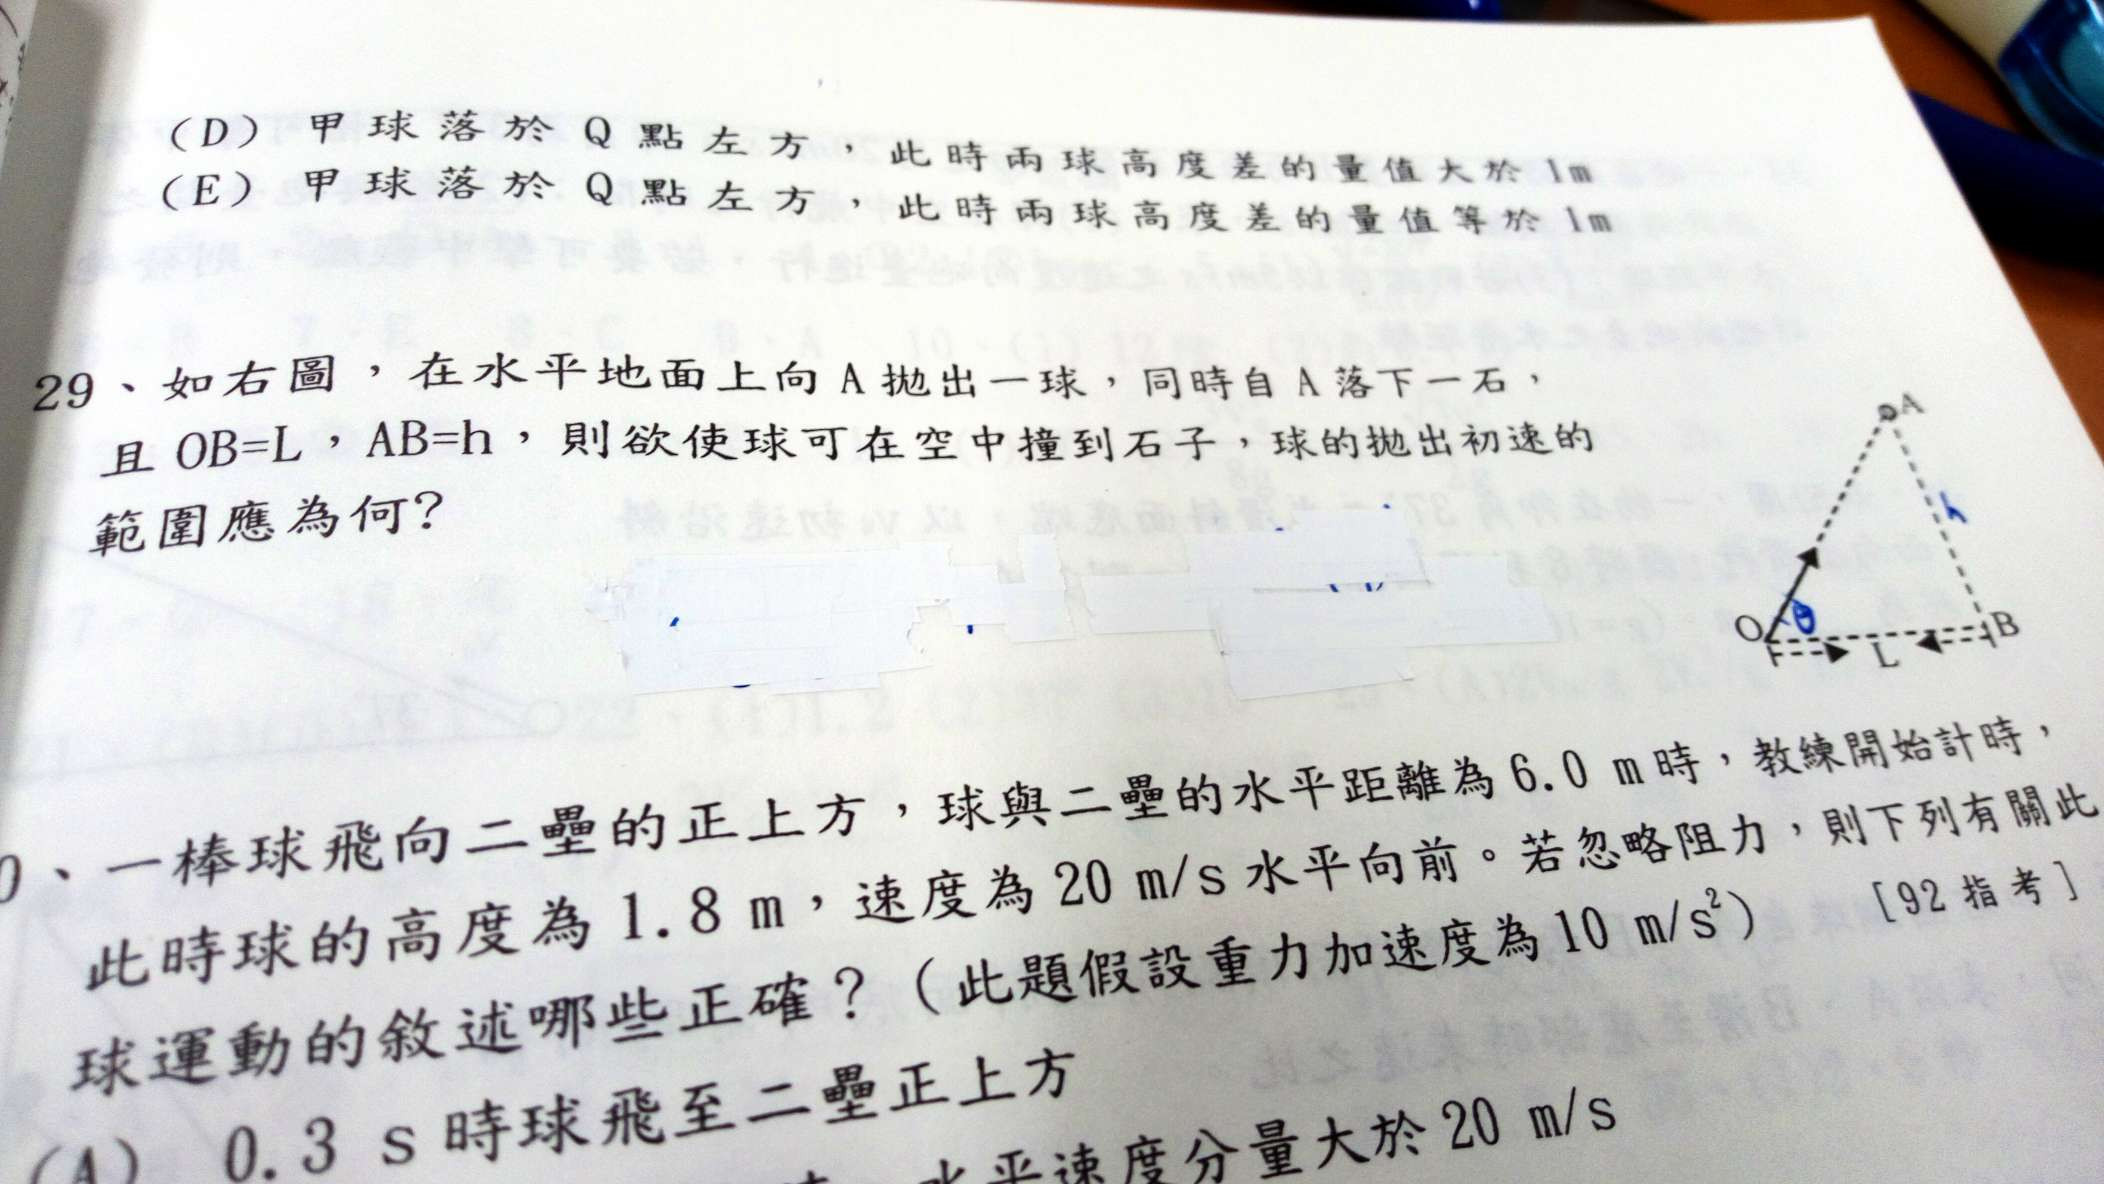 (D) 甲球落於 Q 點左方，此時兩球高度差的量值大於 1m
(E) 甲球落於 Q 點左方，此時兩球高度差的量值等於 1m
29、如右圖，在水平地面上向 A 拋出一球，同時自 A 落下一石，
且 OB=L，AB=h，則欲使球可在空中撞到石子，球的拋出初速的
範圍應為何?
A
h
O
θ
B
L
0、一棒球飛向二壘的正上方，球與二壘的水平距離為 6.0 m 時，教練開始計時，
此時球的高度為 1.8 m，速度為 20 m/s 水平向前。若忽略阻力，則下列有關此
球運動的敘述哪些正確？（此題假設重力加速度為 10 m/s²） [92 指考]
(A) 0.3 s 時球飛至二壘正上方
水平速度分量大於 20 m/s